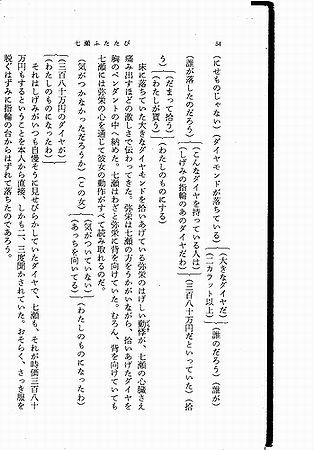 54
七瀬ふたたび
(にせものじゃない)(ダイヤモンドが落ちている)
(大きなダイヤだ)(誰のだろう)(誰が)
(誰が落したのだろう)
(二カラット以上)
(こんなダイヤを持っている人は)
(しげみの指輪のあのダイヤだわ)
(三百八十万円だといっていた)(拾
う)
(だまって拾う)
(わたしが貰う)
(わたしのものにする)
床に落ちていた大きなダイヤモンドを拾いあげている弥栄のはげしい動悸が、七瀬の心臓さえ
痛み出すほどの激しさで伝わってきた。弥栄は七瀬の方をうかがいながら、拾いあげたダイヤを
胸のペンダントの中へ納めた。七瀬はわざと弥栄に背を向けていた。むろん、背を向けていても
七瀬には弥栄の心を通じて彼女の動作がすべて読み取れるのだ。
(気がつかなかっただろうか)(この女)
(気がついていない)
(あっちを向いてる)
(わたしのものになったわ)
(三百八十万円のダイヤが)
(わたしのものになったわ)
それはしげみがいつも自慢そうに見せびらかしていたダイヤで、七瀬も、それが時価三百八十
万円もするということを本人から直接、しかも二、三度聞かされていた。おそらく、さっき服を
脱ぐはずみに指輪の台からはずれて落ちたのであろう。